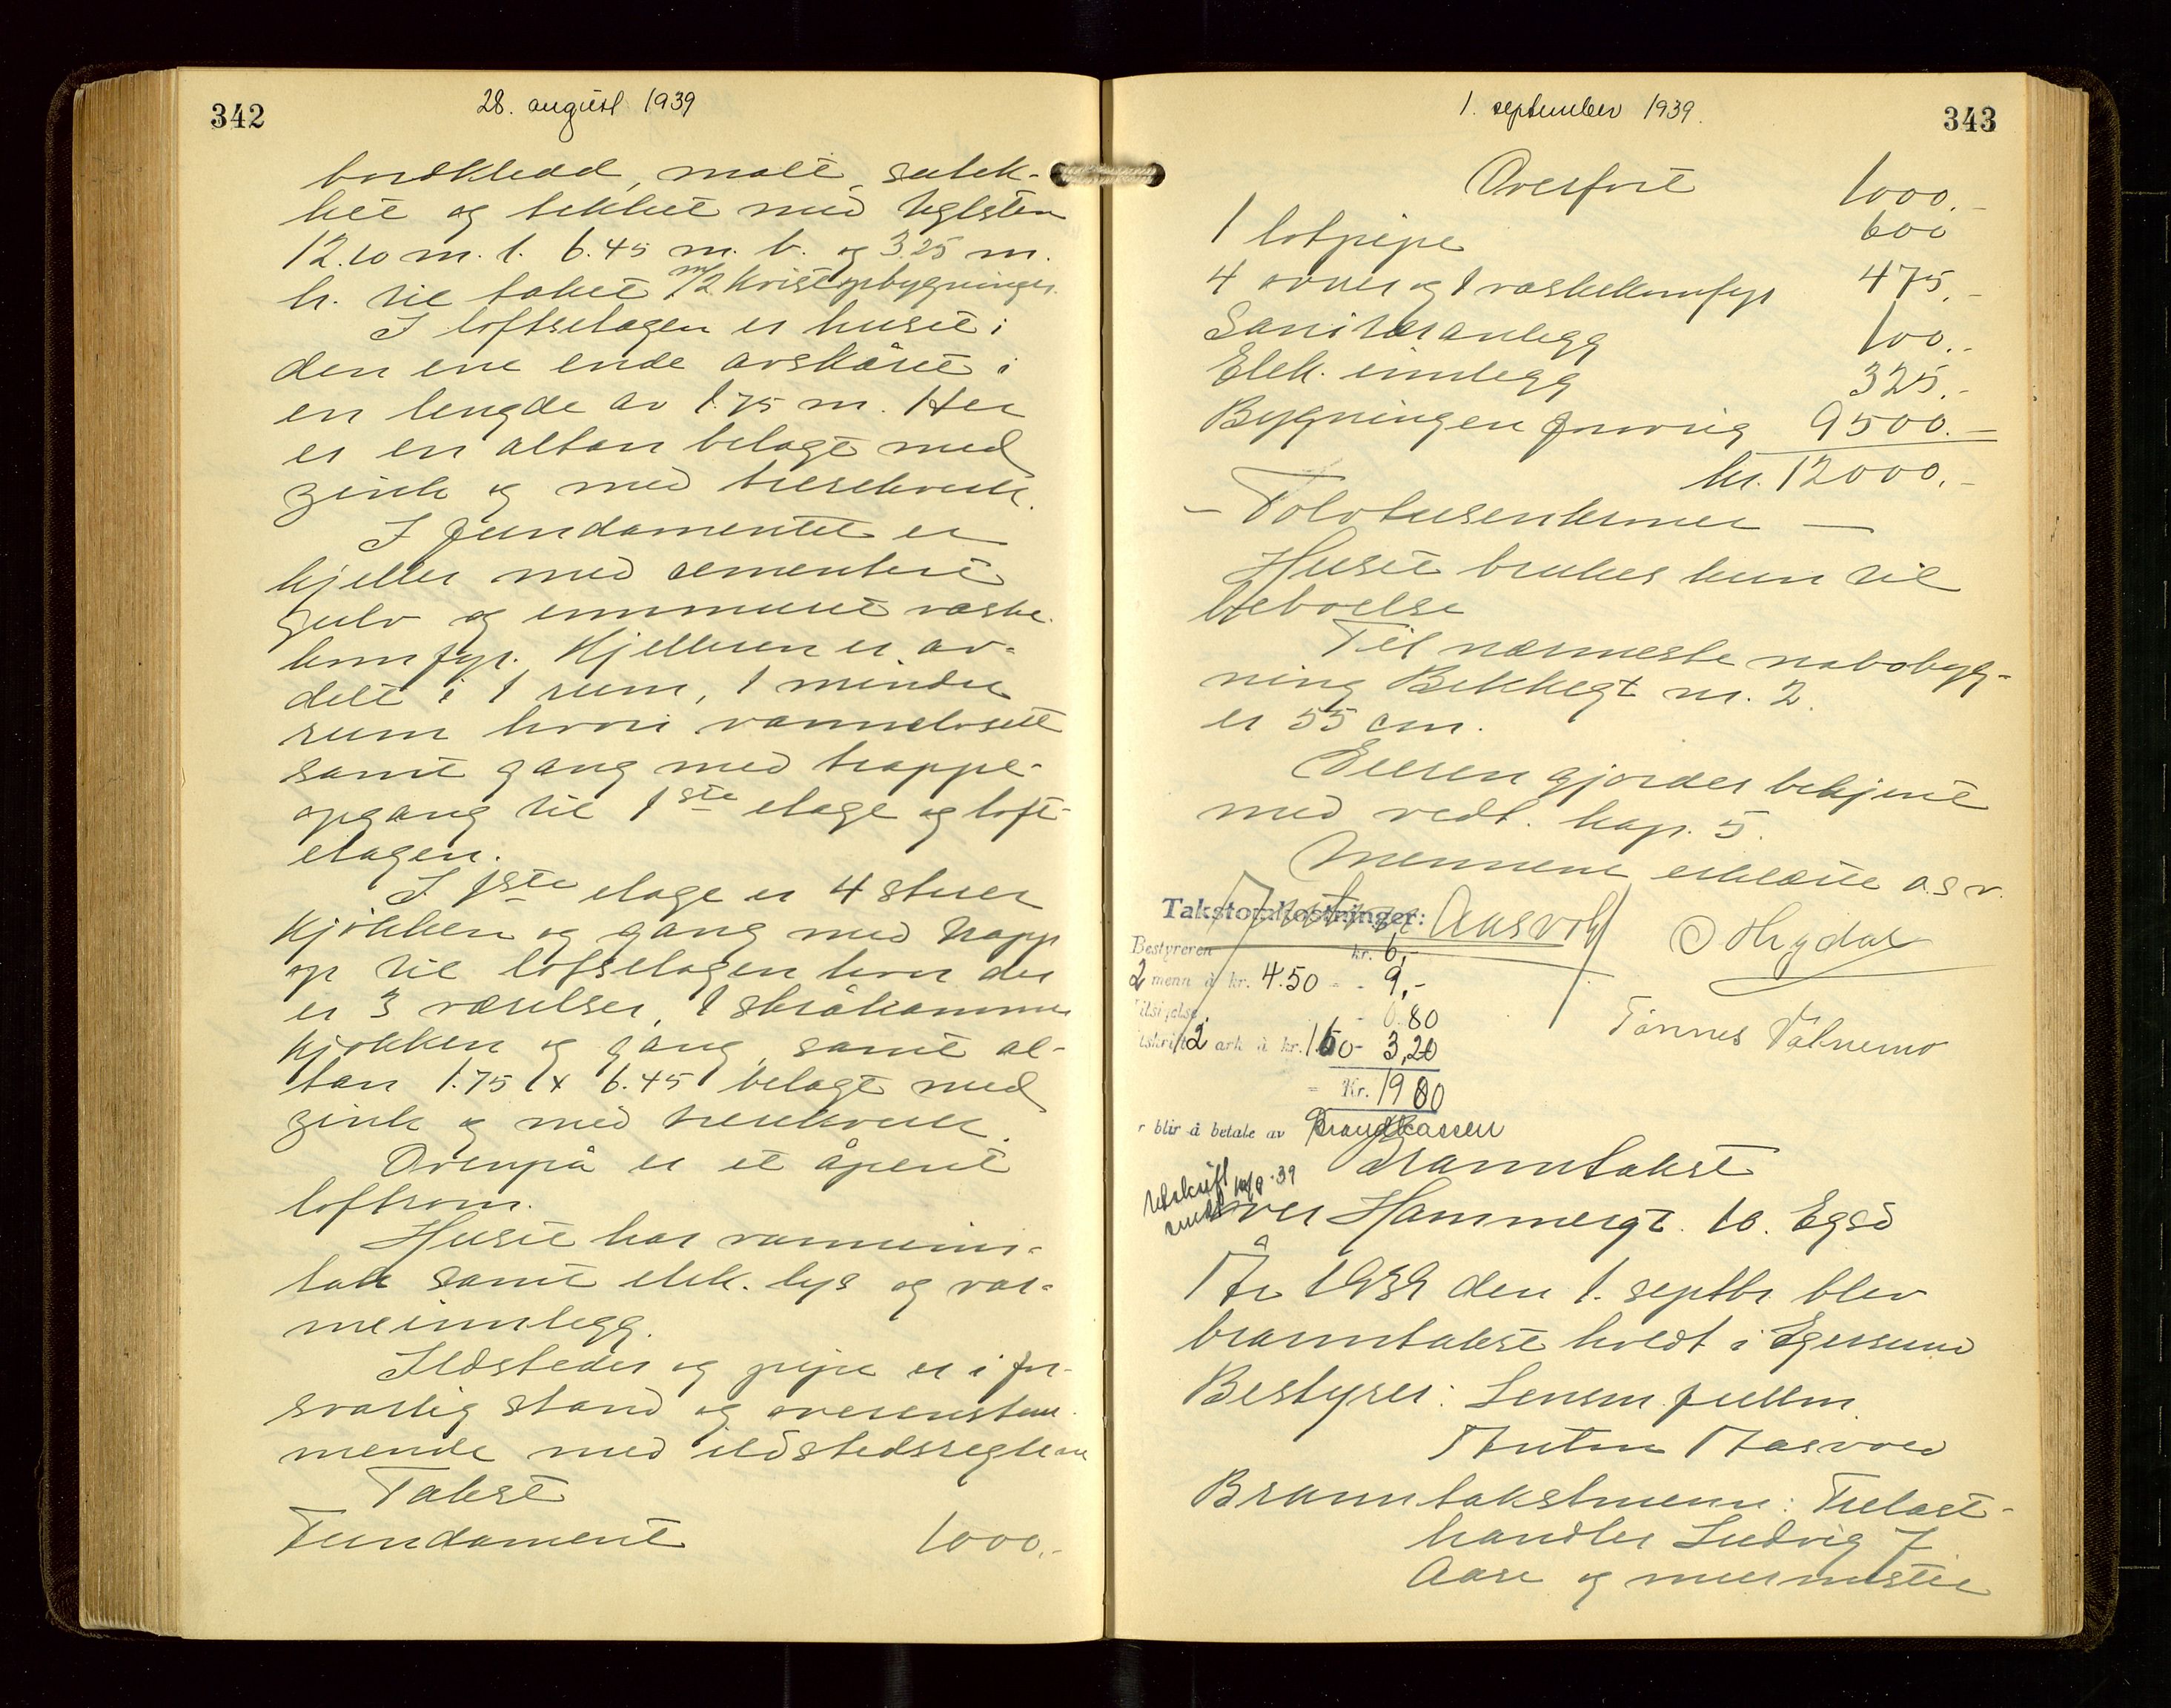 342
28. august 1939
bordkledd, malt, sulek-
ket og tekket med teglsten
12.10 m. l. 6.45 m. b. og 3.25 m.
h. til taket m/2 kvistopbygninger.
I loftsetagen er huset i
den ene ende avskåret i
en lengde av 1.75 m. Her
er en altan belagt med
zink og med trerekverk.
I fundamentet er
kjeller med sementert
gulv og innmuret vaske-
komfyr. Kjelleren er av-
delt i 1 rum, 1 mindre
rum hvori vannclosett
samt gang med trappe-
opgang til 1ste etage og loft-
etagen.
I 1ste etage er 4 stuer
kjøkken og gang med trapp
op til loftsetagen hvor der
er 3 værelser, 1 skråkammer
kjøkken og gang, samt al-
tan 1.75 x 6.45 belagt med
zink og med trerekverk.
Ovenpå er et åpent
loftrom.
Huset har vanninn-
tak samt elek. lys og var-
meinnlegg.
Ildsteder og pipe er i for-
svarlig stand og overenstem-
mende med ildstedsreglene
Takst
Fundament 1000.-
1. september 1939.
343
Overført 1000.-
1 lotpipe 600
4 ovner og 1 vaskekomfyr 475.-
Sanitæranlegg 100.-
Elek. innlegg 325.-
Bygningen forøvrig 9500.-
kr. 12000.-
- Tolvtusenkroner -
Huset brukes kun til
beboelse
Til nærmeste nabobygg-
ning Bekkegt nr. 2.
er 55 cm.
Eieren gjordes bekjent
med vedt. kap. 5.
Mennene erklærte a.s.v.
Aasvold O Hegdal
Tønnes Takstomkostninger:
Bestyreren kr. 6,-
2 menn à kr. 4.50 - - 9,-
Tilsigelse - 0.80
tskrift 2 ark à kr. 1.60 - 3,20
= Kr. 19 00
r blir å betale av Brandkassen
Utskrift
sendt 10/9-39
Branntakst
over Hammergt. 10. Egsd
År 1939 den 1. septbr. blev
branntakst holdt i Egersund
Bestyrer: Lensm. fullm.
Anton Aasvold
Branntakstmenn: Trelast-
handler Ludvig F
Aase og murmester